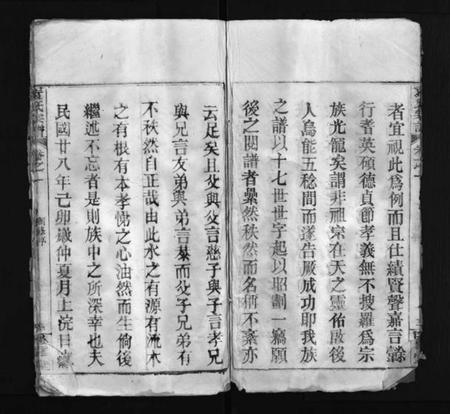 者宜視此為例而且仕績賢聲嘉言懿
行耆英碩德貞節孝義無不搜羅為宗
族光寵矣謂非祖宗在天之靈佑啟後
人烏能五稔間而遂告厥成功即我族
之譜以十七世世字起以昭劃一竊願
後之閱譜者纍然秩然而名稱不紊亦
云足矣且父與父言慈子與子言孝兄
與兄言友弟與弟言恭而父子兄弟有
不秩然自正哉由此水之有源有流木
之有根有本孝悌之心油然而生倘後
繼述不忘者是則族中之所深幸也夫
民國廿八年己卯歲仲夏月上浣日